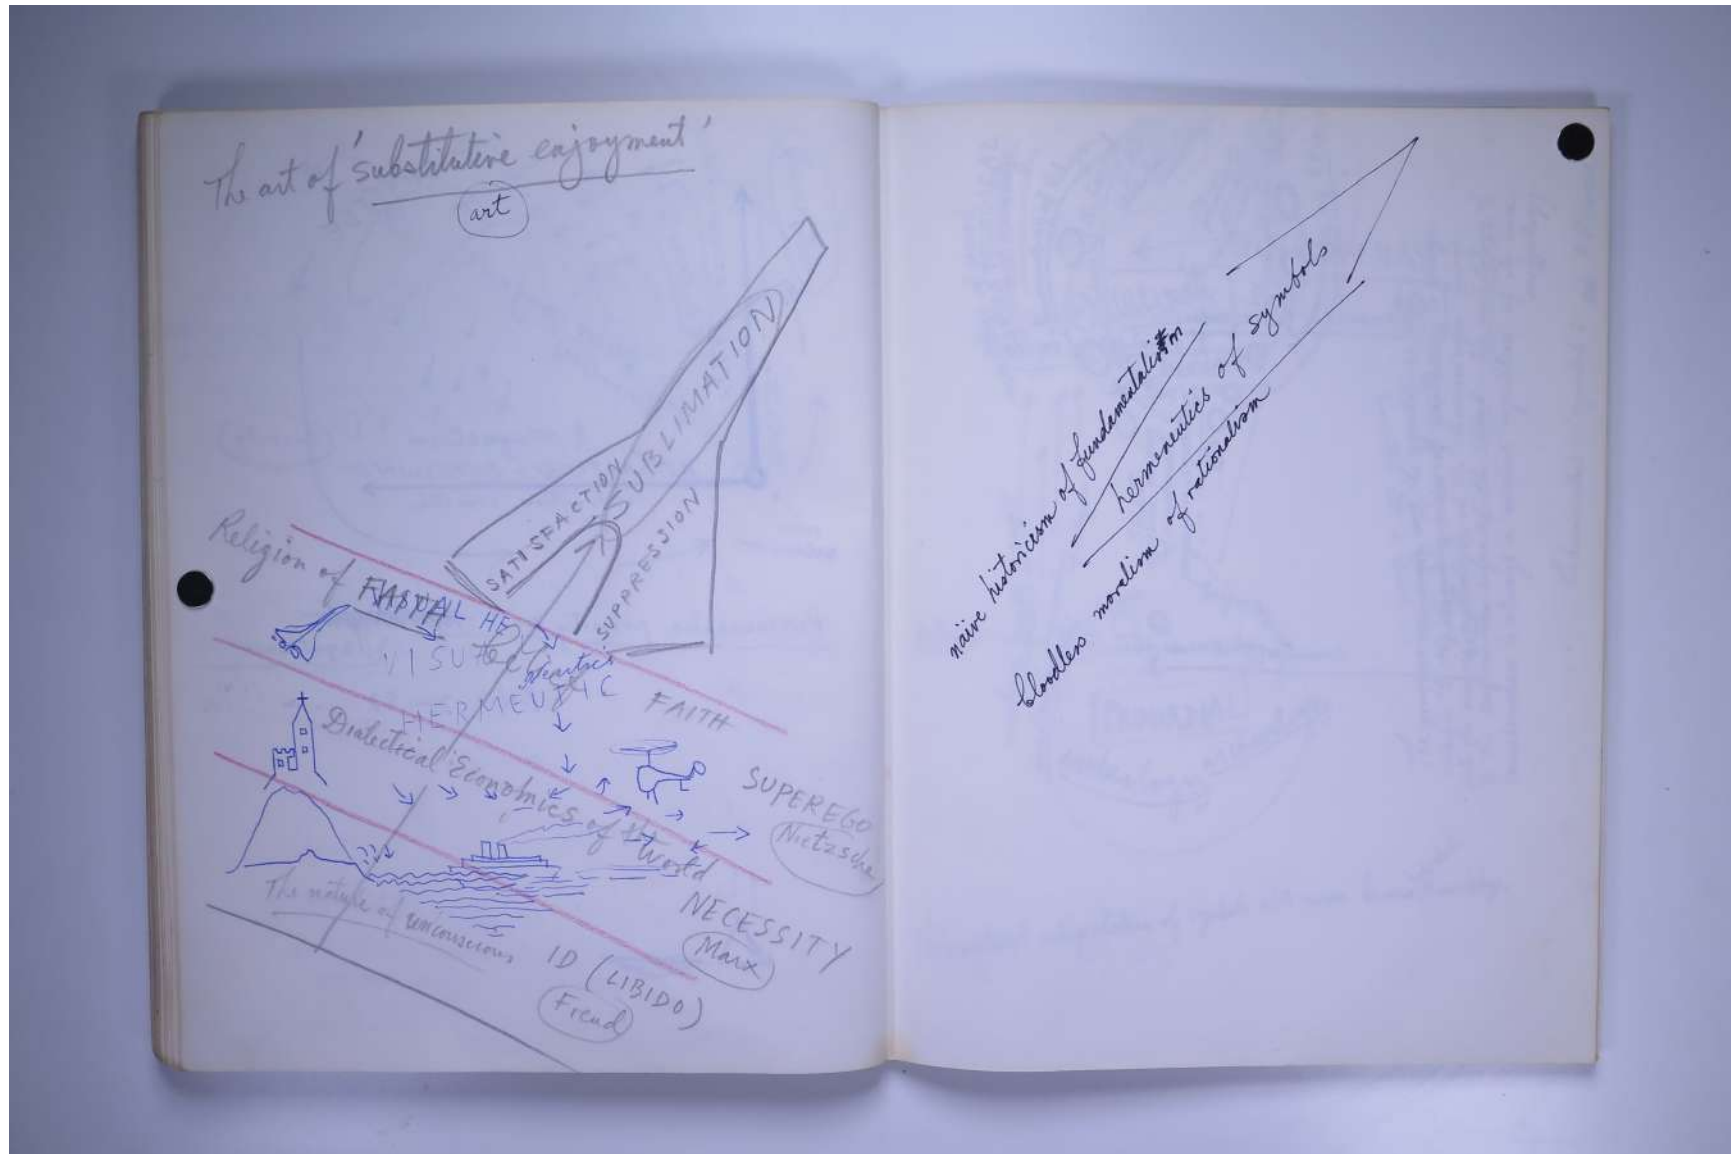 The art of 'substitutive enjoyment'
art
SATISFACTION
SUBLIMATION
SUPPRESSION
Religion of
HE
HERMEUTIC
FAITH
Dialectical Economics of the World
SUPEREGO
Nietzsche
The nature of unconscious
NECESSITY
Marx
ID (LIBIDO)
Freud
naive historicism of fundamentalism
hermeneutics of symbols
bloodless moralism of rationalism